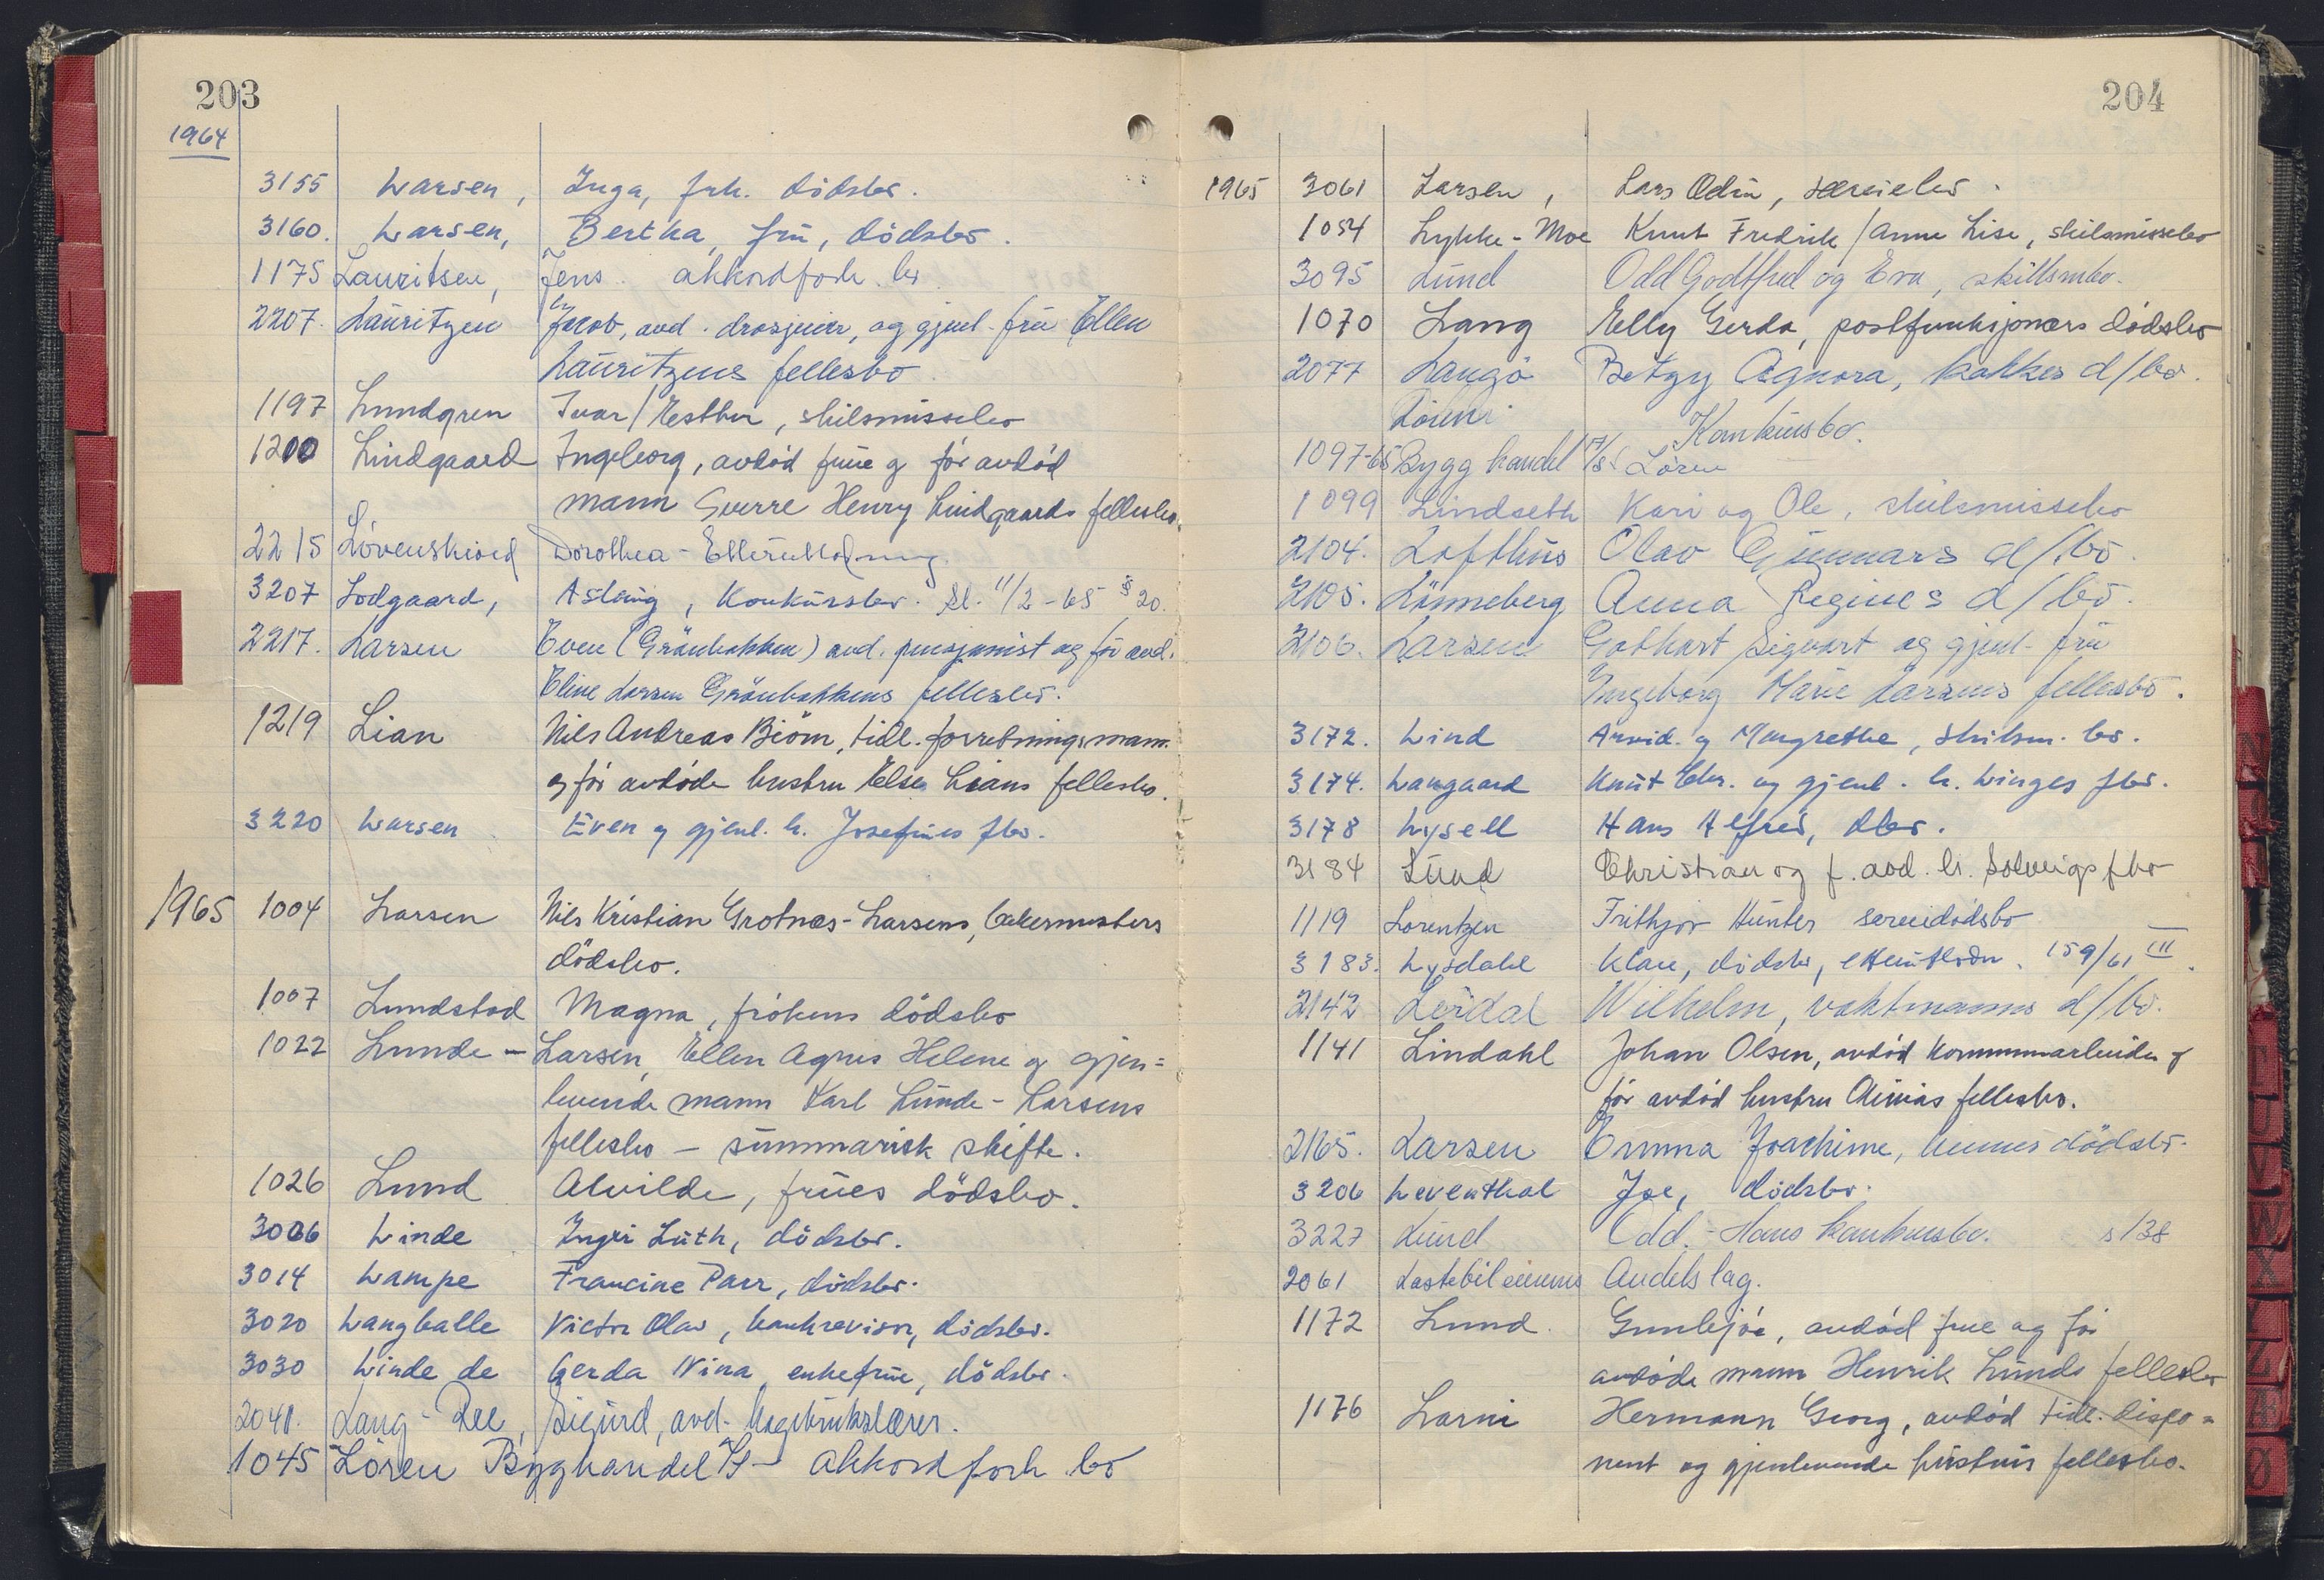 203
1964
3155 Larsen, Inga, frk. dödsbo.
3160. Larsen, Bertha, fru, dödsbo.
1175 Lauritsen, Jens akkordforh. bo
2207. Lauritzen Jacob, avd. drosjeeier, og gjenl. frü Ellen
Lauritzens fellesbo.
1197 Lundgren Ivar/Esther, skilsmissebo
1200 Lindgaard Ingeborg, avdöd frue og för avdöd
mann Sverre Henry Lindgaards fellesbo.
2215 Lövenskiold Dorothea -
3207 Lodgaard, Aslaug, Konkursbo. Sl. 11/2-65 § 20.
2217. Larsen Even (Grönbakken) avd. pensjonist og för avd.
Eline Larsen Grönbakkens fellesbo.
1219 Lian Nils Andreas Biörn, tidl. forretningsmann
og för avdöde hustru Else Lians fellesbo.
3220 Larsen Even og gjenl. h. Josefines fbo.
1965 1004 Larsen Nils Kristian Grotnæs-Larsens, bakermesters
dödsbo.
1007 Lundstad Magna, frökens dödsbo
1022 Lunde - Larsen, Ellen Agnes Helene og gjen=
levende mann Karl Lunde-Larsens
fellesbo - summarisk skifte.
1026 Lund Alvilde, frues dödsbo.
3006 Linde Inger Luth, dödsbo.
3014 Lampe Francine Parr, dödsbo.
3020 Langballe Victor Olav, bankrevisor, dödsbo.
3030 Linde de Gerda Nina, enkefrue, dödsbo.
2041. Lang - Ree, Sigurd, avd.
1045 Lören Bÿghandel A/S - akkordforh. bo
204
1965 3061 Larsen, Lars Odin, særeiebo.
1054 Lykke-Moe Knut Fredrik/Anne Lise, skilsmissebo
3095 Lund Odd Godtfred og Eva, skillsmbo.
1070 Lang Elly Gerda, postfunksjonærs dödsbo
2077 Langö Betzy Agnora, kokkes d/bo.
Lören Konkursbo.
1097-65 Bygg handel A/S Lören
1099 Lindseth Kari og Ole, skilsmissebo
2104. Lofthus Olav Gunnars d/bo.
2105. Lönneberg Anna Regines d/bo.
2106. Larsen Gothart Sigvart og gjenl. frü
Ingeborg Marie Larsens fellesbo.
3172. Lind Arvid. og Margrethe, skilsm. bo.
3174. Langaard Knut Chr. og gjenl. h. Linges fbo.
3178 Lysell Hans Alfred, dbo.
3184 Lund Christian og f. avd. h. Solveigs fbo
1119 Lorentzen Frithjov Hunter
3183. Lysdahl dödsbo, 159/61 III.
2142 Lerdal Wilhelm, vaktmanns d/bo.
1141 Lindahl Johan Olsen, avdöd kommunearbeider og
för avdöd hustru fellesbo.
2165. Larsen Emma Joachime, hennes dödsbo.
3206 Leventhal Joe, dödsbo.
3227 Lund Odd. - Hans konkursbo. s 138
2061 Lastebileiernes Andelslag.
1172 Lund Gunbjör, avdöd frue og för
avdöde mann Henrik Lunds fellesbo
1176 Larni Hermann Georg, avdöd tidl. dispo=
nent og gjenlevende hustrus fellesbo.
N
P
R
T
U
V
W
X
Z
Z
Æ
Ø